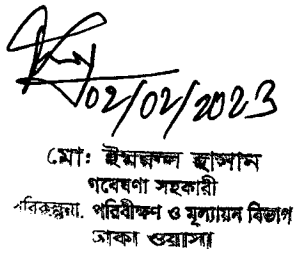 02/02/2023
মো: ইমরুল হাসান
গবেষণা সহকারী
পরিকল্পনা, পরিবীক্ষণ ও মূল্যায়ন বিভাগ
ঢাকা ওয়াসা